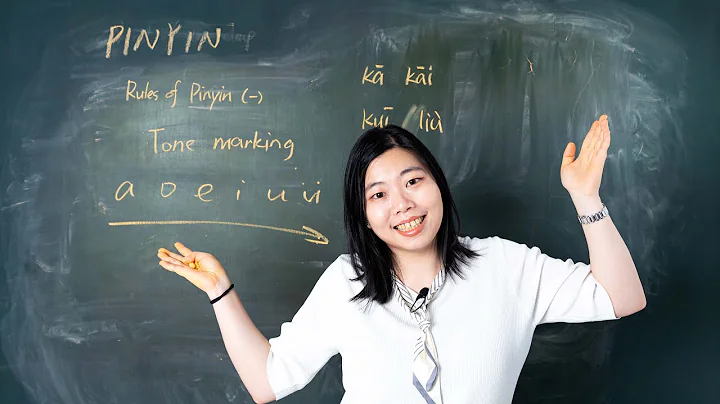 PINYIN
Rules of Pinyin (一)
Tone marking
a o e i u ü
kā kāi
kuī liù